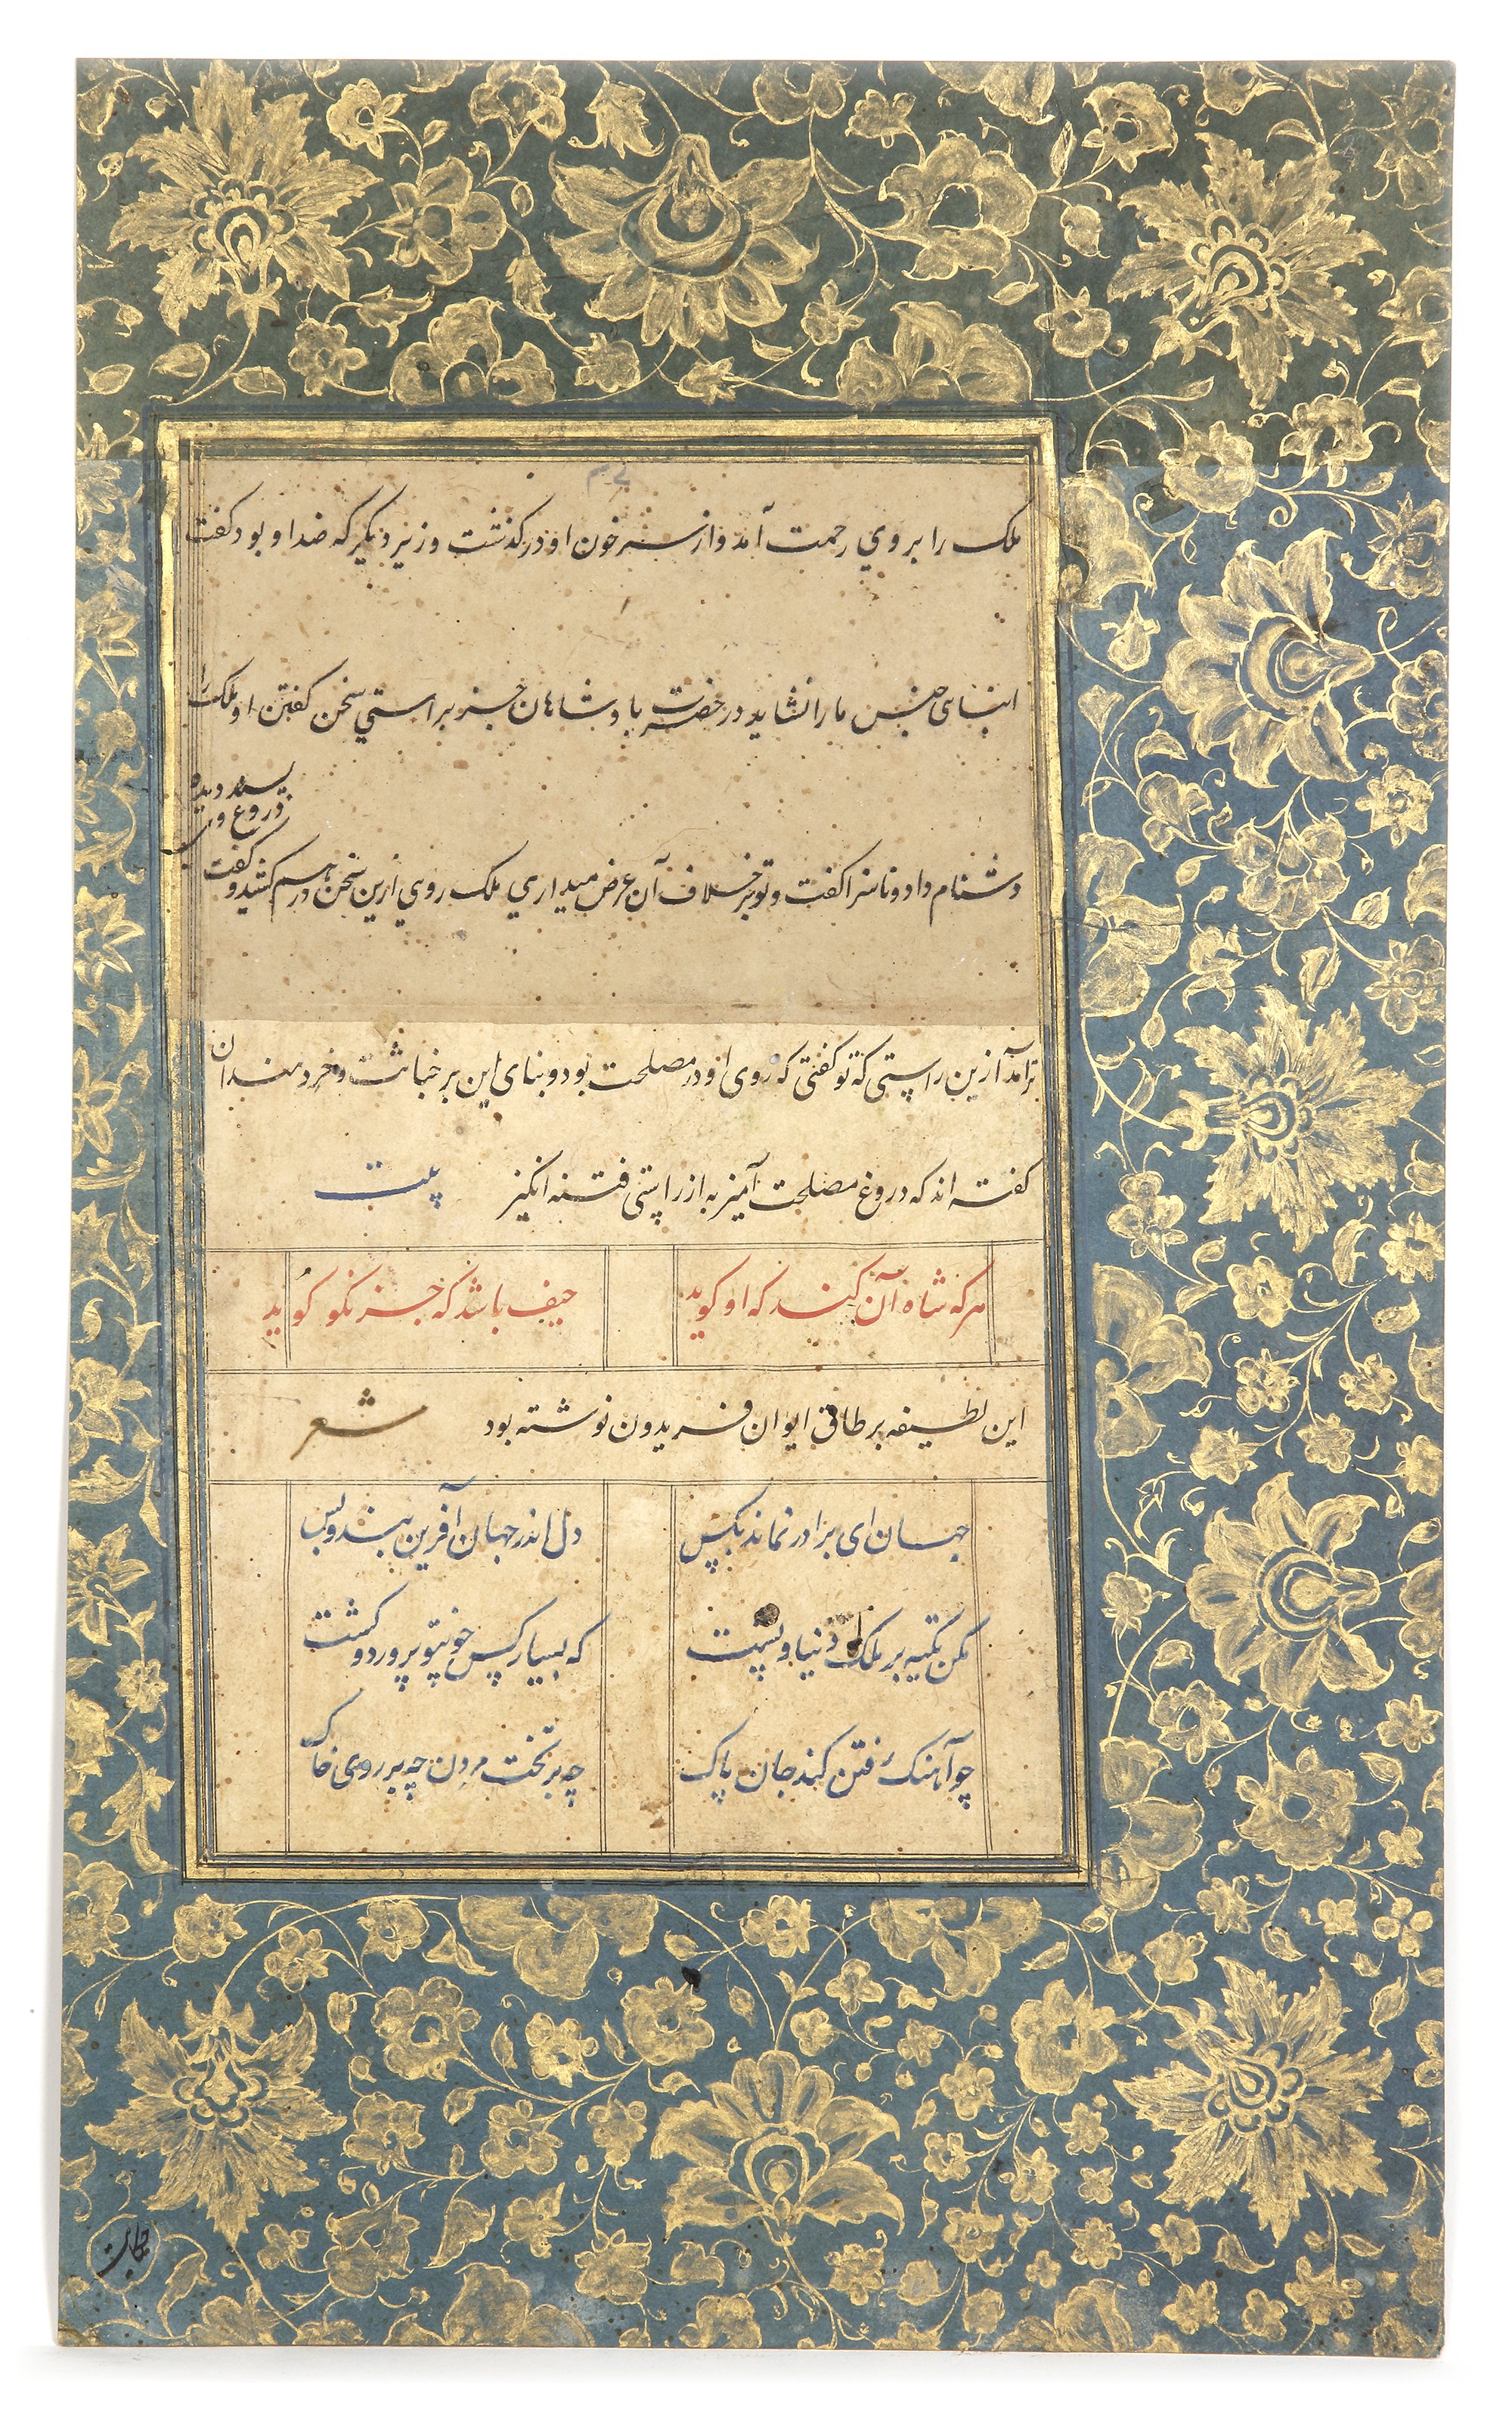 ملک را بروي رحمت آمد و از سر خون او درکذشت وزیر دیکر که ضد او بود کفت
ابنای جنس ما را نشاید در حضرت پادشاهان جز براستي سخن کفتن او ملک را
دشنام داد و ناسزا کفت و تو بر خلاف آن عرض میداري ملک روي ازین سخن درهم کشید و کفت
دروغ وی
پسندیده
تر آمد ازین راستی که تو کفتی که روی او در مصلحت بود و بنای این بر خباثت و خردمندان
کفته اند که دروغ مصلحت آمیز به از راستی فتنه انکیز بیت
هر که شاه آن کند که او کوید حیف باشد که جز نکو کوید
این لطیفه بر طاق ایوان فریدون نوشته بود شعر
جهان ای برادر نماند بکس دل اندر جهان آفرین بند و بس
مکن تکیه بر ملک دنیا و پشت که بسیار کس چو تو پرورد و کشت
چو آهنک رفتن کند جان پاک چه بر تخت مردن چه بر روی خاک